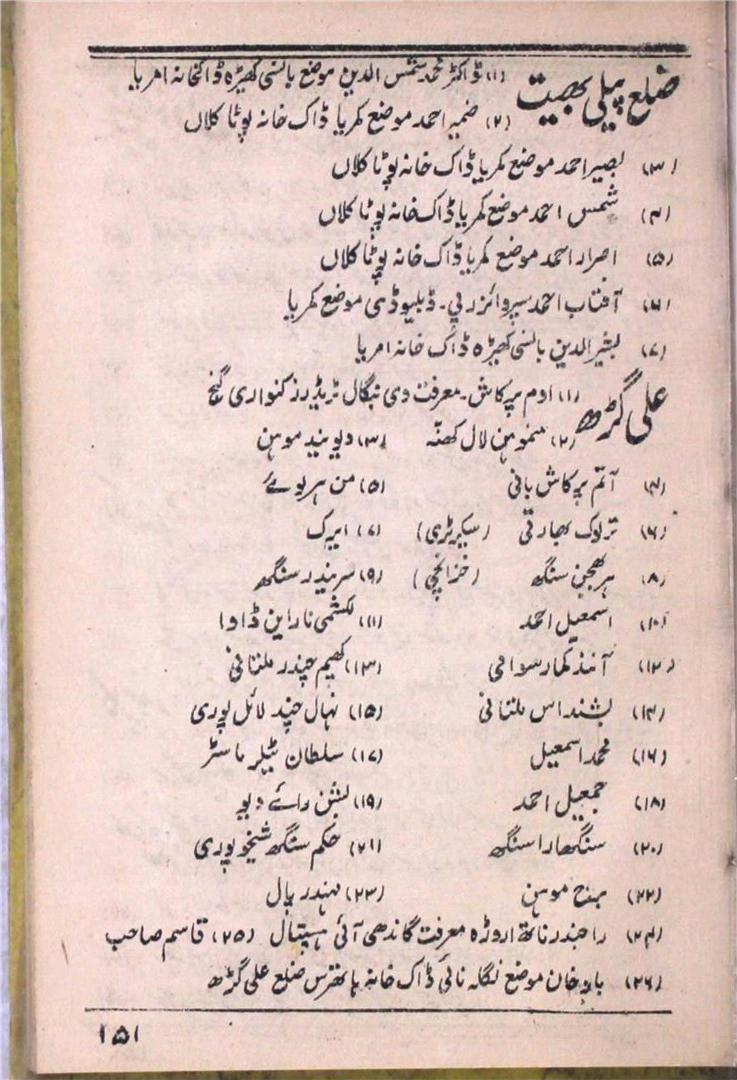 ضلع پیلی بھیت (۱) ڈاکٹر محمد شمس الدین موضع بانسی کھیڑہ ڈاکخانہ امریا۔
(۲) ضمیر احمد موضع کمریا ڈاک خانہ پوٹا کلاں
(۳) بصیر احمد موضع کمریا ڈاک خانہ پوٹا کلاں
(۴) شمس احمد موضع کمریا ڈاک خانہ پوٹا کلاں
(۵) اصرار احمد موضع کمریا ڈاک خانہ پوٹا کلاں
(۶) آفتاب احمد سپروائزر پی۔ ڈبلیو ڈی موضع کمریا
(۷) بشیر الدین بانسی کھیڑہ ڈاک خانہ امریا
علی گڑھ (۱) اوم پرکاش۔ معرفت دی بنگال ٹریڈرز کنواری گنج
(۲) منموہن لال کھنہ (۳) دیویند موہن
(۴) آتم پرکاش بانی (۵) من ہر پوے
(۶) ترلوک بھارتی (سیکریٹری) (۷) ایرک
(۸) ہربھجن سنگھ (خزانچی) (۹) سریندر سنگھ
(۱۰) اسمعیل احمد (۱۱) لکشمی نارائن ڈاوا
(۱۲) آنند کمار سوامی (۱۳) کھیم چندر ملتانی
(۱۴) بشنداس ملتانی (۱۵) نہال چند لائل پوری
(۱۶) محمد اسمعیل (۱۷) سلطان ٹیلر ماسٹر
(۱۸) جمیل احمد (۱۹) بشن رائے دیو
(۲۰) سنگھارا سنگھ (۲۱) حکم سنگھ شیخوپوری
(۲۲) برج موہن (۲۳) مہندر پال
(۲۴) راجندر ناتھ اروڑہ معرفت گاندھی آئی ہسپتال (۲۵) قاسم صاحب
(۲۶) بابو خان موضع نگلہ نائی ڈاک خانہ ہاتھرس ضلع علی گڑھ
۱۵۱